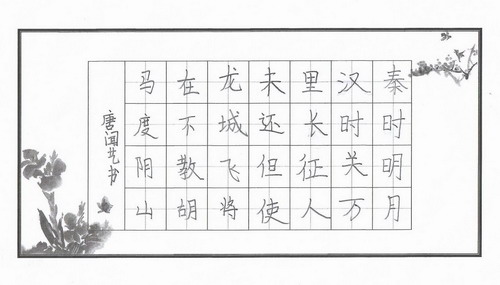 秦时明月
汉时关万
里长征人
未还但使
龙城飞将
在不教胡
马度阴山
唐闻艺书